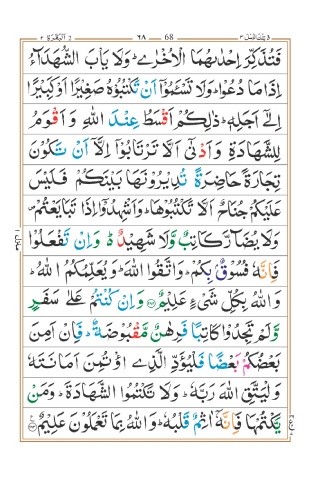 تلك الرسل ٣ ٦٨ 68 البقرة ٢
فَتُذَكِّرَ اِحْدٰىهُمَا الْاُخْرٰىؕ وَلَا يَاْبَ الشُّهَدَآءُ
اِذَا مَا دُعُوْاؕ وَلَا تَسْـَٔمُوْۤا اَنْ تَكْتُبُوْهُ صَغِيْرًا اَوْ كَبِيْرًا
اِلٰۤى اَجَلِهٖؕ ذٰلِكُمْ اَقْسَطُ عِنْدَ اللّٰهِ وَاَقْوَمُ
لِلشَّهَادَةِ وَاَدْنٰۤى اَلَّا تَرْتَابُوْۤا اِلَّاۤ اَنْ تَكُوْنَ
تِجَارَةً حَاضِرَةً تُدِيْرُوْنَهَا بَيْنَكُمْ فَلَيْسَ
عَلَيْكُمْ جُنَاحٌ اَلَّا تَكْتُبُوْهَاؕ وَاَشْهِدُوْۤا اِذَا تَبَايَعْتُمْ۪
وَلَا يُضَآرَّ كَاتِبٌ وَّلَا شَهِيْدٌ۬ؕ وَاِنْ تَفْعَلُوْا
فَاِنَّهٗ فُسُوْقٌۢ بِكُمْؕ وَاتَّقُوا اللّٰهَؕ وَيُعَلِّمُكُمُ اللّٰهُؕ
وَاللّٰهُ بِكُلِّ شَيْءٍ عَلِيْمٌ وَاِنْ كُنْتُمْ عَلٰى سَفَرٍ
وَّلَمْ تَجِدُوْا كَاتِبًا فَرِهٰنٌ مَّقْبُوْضَةٌؕ فَاِنْ اَمِنَ
بَعْضُكُمْ بَعْضًا فَلْيُؤَدِّ الَّذِى اؤْتُمِنَ اَمَانَتَهٗ
وَلْيَتَّقِ اللّٰهَ رَبَّهٗؕ وَلَا تَكْتُمُوا الشَّهَادَةَؕ وَمَنْ
يَّكْتُمْهَا فَاِنَّهٗۤ اٰثِمٌ قَلْبُهٗؕ وَاللّٰهُ بِمَا تَعْمَلُوْنَ عَلِيْمٌ